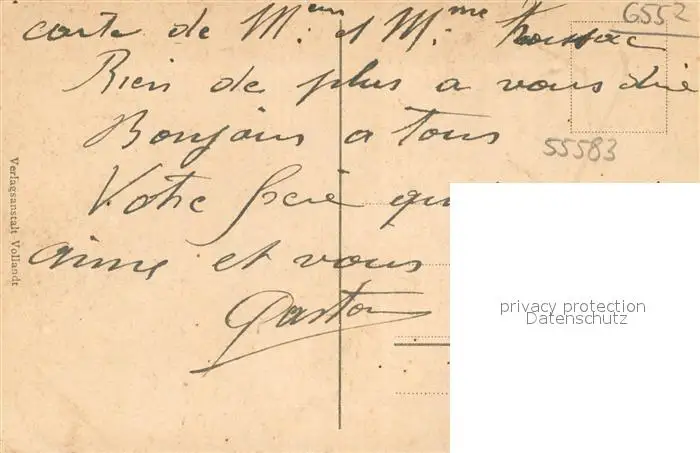 6552
carte de Meur et Mme
Rien de plus a vous dire
Bonjour a tous
55583
Votre frère qui
aime et vous
Gaston
Verlagsanstalt Vollandt
privacy protection
Datenschutz